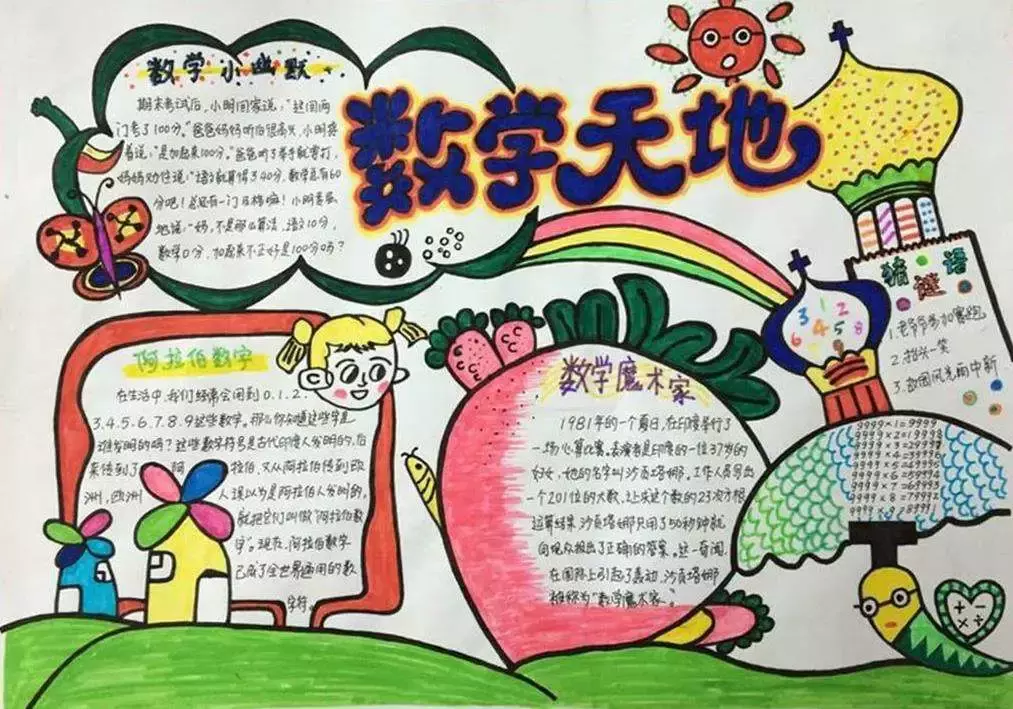 数学天地
数学小幽默
期末考试后,小明回家说:“这回两
门考了100分。”爸爸妈妈听后很高兴,小明接
着说:“是加起来100分。”爸爸听了举手就要打,
妈妈劝住说:“语文就算得了40分,数学总有60
分吧!总还有一门及格嘛!小明委屈
地说:“妈,不是那么算法,语文10分,
数学0分,加起来不正好是100分吗?
阿拉伯数字
在生活中,我们经常会用到0.1.2.
3.4.5.6.7.8.9这些数字。那么你知道这些字是
谁发明的吗?这些数字符号是古代印度人发明的,后
来传到了阿拉伯,又从阿拉伯传到欧
洲,欧洲人误以为是阿拉伯人发明的,
就把它们叫做“阿拉伯数
字”。现在,阿拉伯数字
已成了全世界通用的数
字符。
数学魔术家
1981年的一个夏日,在印度举行了
一场心算比赛。表演者是印度的一位37岁的
妇女,她的名字叫沙贡塔娜。工作人员写出
一个201位的大数,让求这个数的23次方根
运算结果沙贡塔娜只用了50秒钟就
向观众报出了正确的答案。这一奇闻
在国际上引起了轰动,沙贡塔娜
被称为“数学魔术家”。
猜谜语
1.老爷爷参加赛跑
2.抬头一笑
3.故国风光雨中新
3 1 2
6 4 5 8
9999×1=9999
9999×2=19998
9999×4=39996
9999×5=49995
9999×6=59994
9999×7=69993
9999×8=79992
9999×9=89991
+ −
× ÷